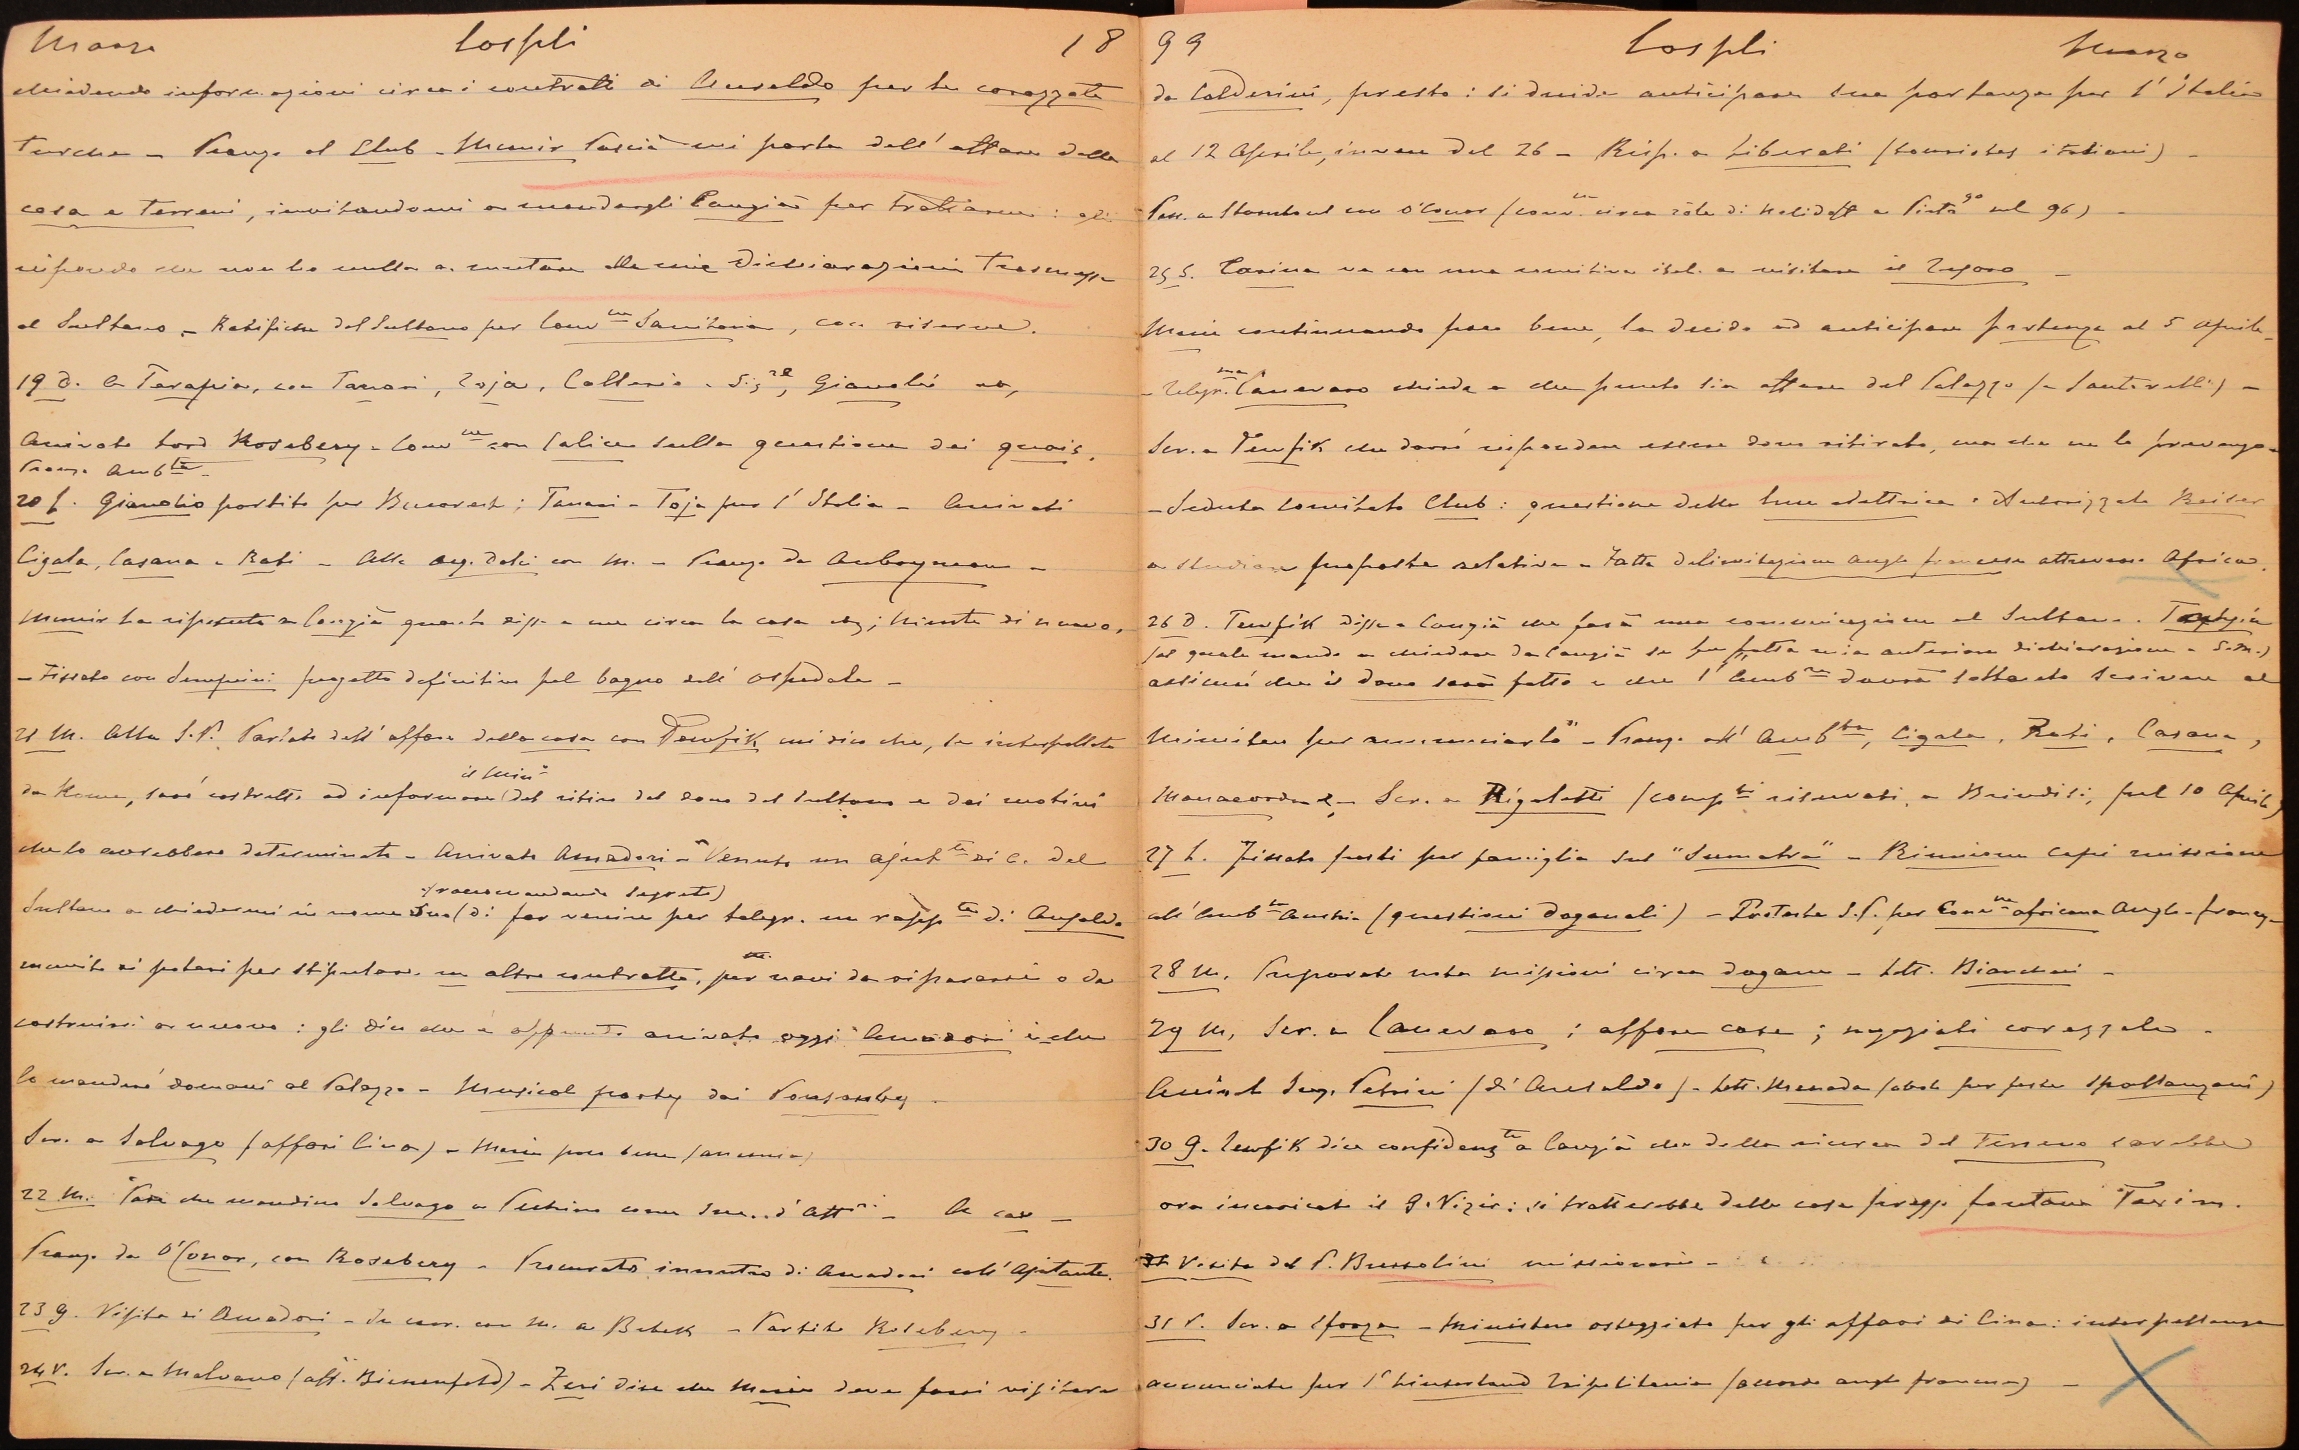 Marzo Cospli 18
chiedendo informazioni circa i contratti di Ansaldo per le corazzate
turche – Pranzo al Club – Munir Pascià mi parla dell'affare della
casa e terreni, invitandomi a mandargli Cangià per trattarne: gli
rispondo che non ho nulla a mutare alle mie dichiarazioni trasmesse
al Sultano – Ratifiche del Sultano per Conv.ne Sanitaria, con riserve.
19 D. a Terapia, con Tanari, Toja, Calleri e Sig.re, Gianolio
Arrivato Lord Rosebery – Conv.ne con Salice sulla questione dei quais.
Pranzo Amb.ta –
20 L. Gianolio partito per Bucarest; Tanari – Toja per l'Italia – Arrivati
Cigala, Casana e Rati – con M. – Pranzo da Auboyneau –
Munir ha ripetuto a Cangià quanto disse a me circa la casa ; niente di nuovo.
– Fissato con Semprini progetto definitivo pel bagno dell'ospedale –
21 M. Alla S.P. Parlato dell'affare della casa con Tewfik mi dice che, se interpellato
il Min.o
da Roma, sarà costretto ad informare del ritiro del dono del Sultano e dei motivi
che lo avrebbero determinato – Arrivato Amadori – Venuto un ajut.te di C. del
(raccomandando segreto)
Sultano a chiedermi in nome Suo di far venire per telegr. un rapp.te di Ansaldo
munito di poteri per stipulare un altro contratto, per navi da ripararsi o da
costruirsi a nuovo: gli dico che è appunto arrivato oggi Amadori e che
lo manderò domani al Palazzo – Musical party dai Ponsonby –
Scr. a Salvago (affari Cina) – Maria poco bene (anemia)
22 M. Pare che mandino Salvago a Pechino come Inc. d'Aff.ri –
Pranzo da O'Conor, con Rosebery – Procurato incontro di Amadori coll'Ajutante.
23 G. Visita di Amadori – In con M. a Bebek – Partito Rosebery –
24 V. Scr. a Malvano (aff. Bienenfeld) – Zeri dice che Maria deve farsi visitare
99 Cospli Marzo
da Calderini, presto: si decide anticipare sua partenza per l'Italia
al 12 Aprile, invece del 26 – Risp. a Liberati (touristes italiani) –
Pass. a Stamboul con O'Conor (conv.ne circa rôle di Nelidoff a nel 96) –
25 S. Carina va con una comitiva ital. a visitare il Tesoro –
Maria continuando poco bene, la decido ad anticipare partenza al 5 Aprile –
– Telegr.ma Canevaro chiede a che punto sia affare del Palazzo (a Santorelli) –
Scr. a Tewfik che dovrò rispondere essere dono ritirato, ma che ne lo prevengo –
– Seduta Comitato Club: questione della luce elettrica: Autorizzato Keiser
a studiare proposta relativa – Fatta delimitazione anglo francese attraverso Africa.
26 D. Tewfik disse a Cangià che farà una comunicazione al Sultano.
(al quale mando a chiedere da Cangià se fu fatta mia anteriore dichiarazione a S.M.)
assicurò che il dono sarà fatto e che l'Amb.re dovrà soltanto scrivere al
Ministero per annunciarlo – Pranzo all'Amb.ta, Cigala, Rati, Casana,
Scr. a Rigoletti (comp.ti riservati, a Brindisi, pel 10 Aprile)
27 L. Fissato posti per famiglia sul "Sumatra" – Riunione capi missione
all'Amb.ta Austria (questioni doganali) – Protesta S.P. per Conv.ne africana Anglo-francese
28 M. Preparato nota missioni circa dogane – Lett. Biancheri –
29 M. Scr. a Canevaro; affare casa; negoziati corazzate –
Arrivato Ing. Petrini (d'Ansaldo) – Lett. Menada ( per feste Spallanzani)
30 G. Tewfik dice confidenz.te a Cangià che della ricerca del terreno sarebbe
ora incaricato il G. Vizir: si tratterebbe della casa presso fontana Taxim.
Visita del P. Bussolini missionario –
31 V. Scr. a Sforza – Ministero osteggiato per gli affari di Cina: interpellanze
annunciate per l'hinterland Tripolitania (accordo anglo francese) –